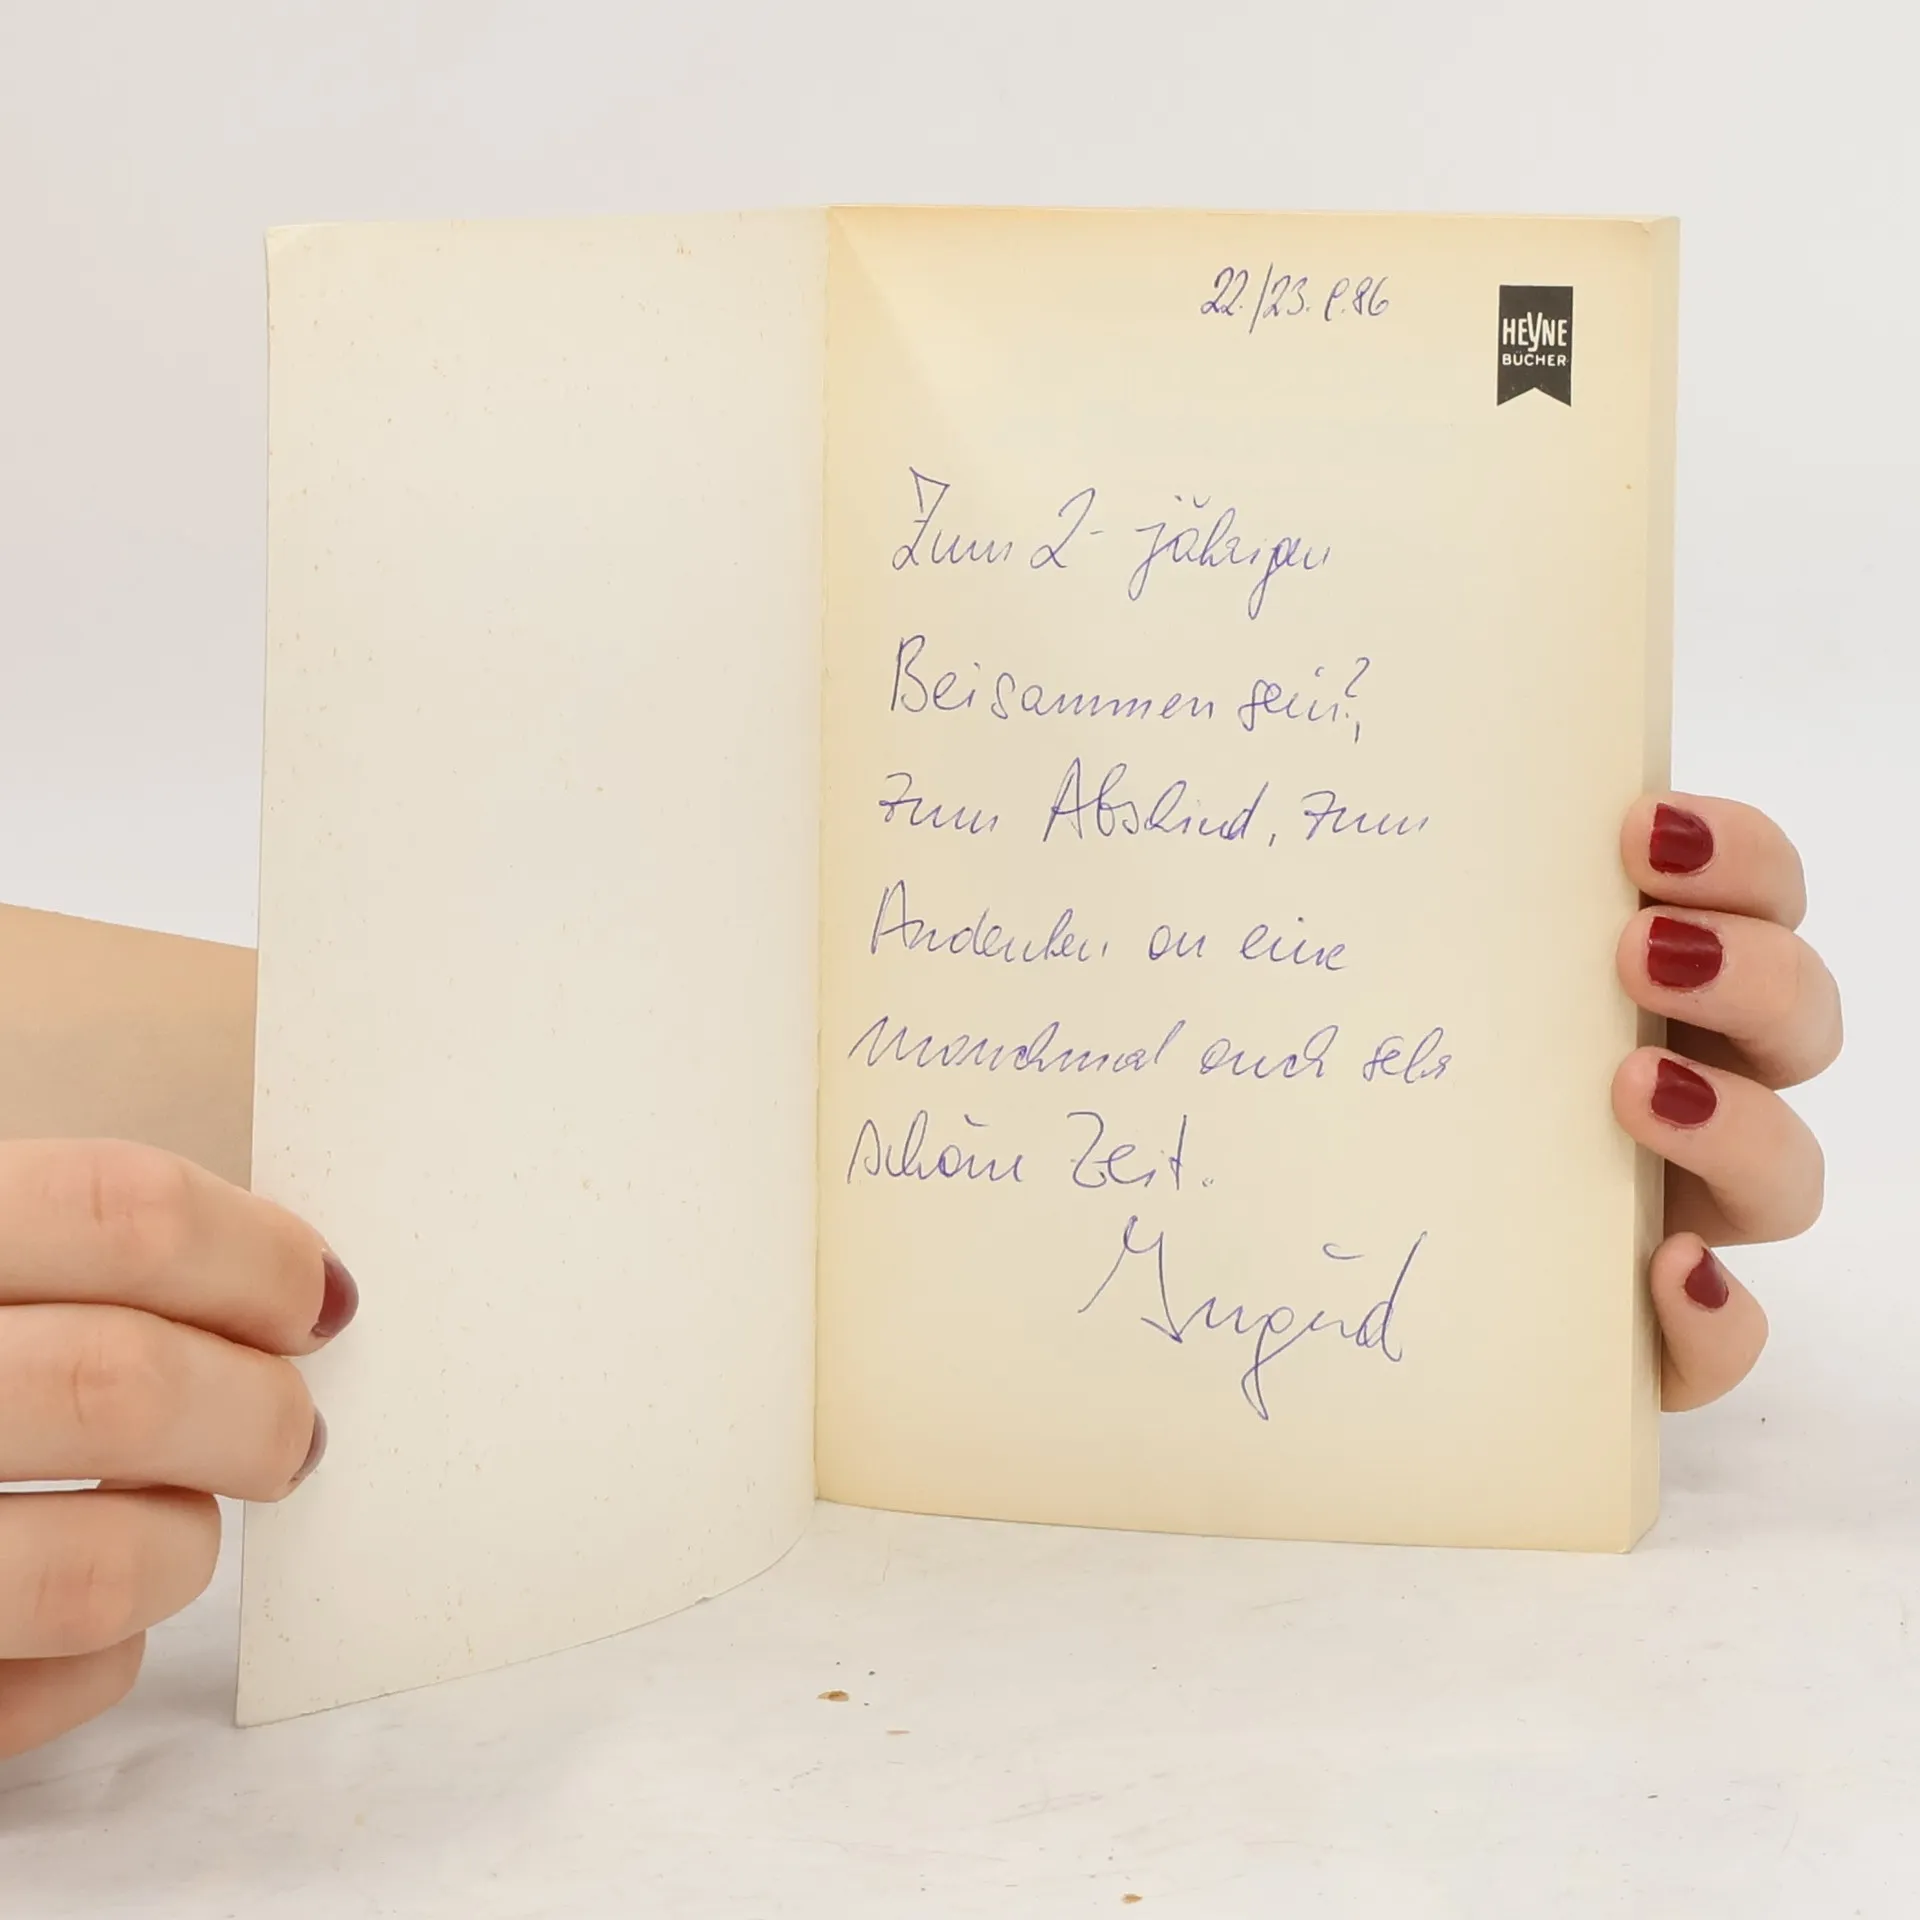 22./23. 8. 86
HEYNE
BÜCHER
Zum 2-jährigen
Beisammensein?,
zum Abschied, zum
Andenken an eine
manchmal auch sehr
schöne Zeit.
Ingrid